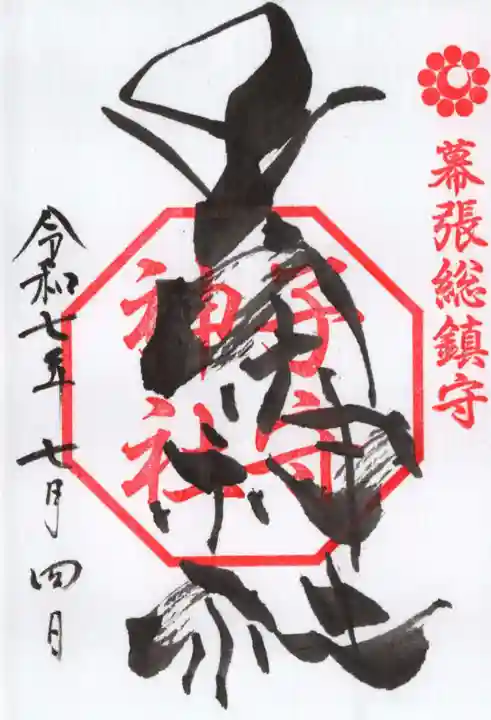 幕張総鎮守
子守
神社
令和七年 七月四日